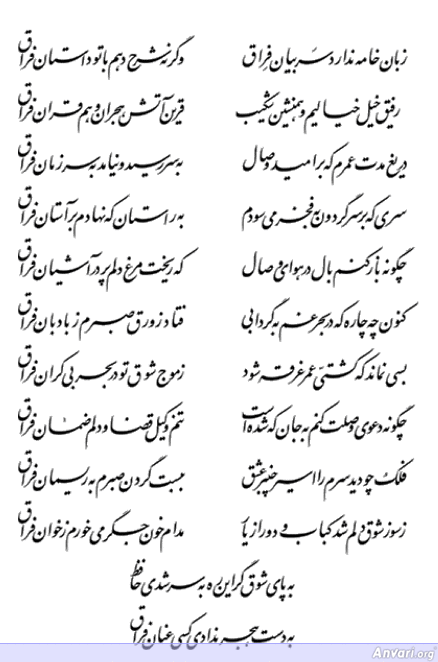 زبان خامه ندارد سر بیان فراق وگرنه شرح دهم با تو داستان فراق
رفیق خیل خیالیم و همنشین شکیب قرین آتش هجران و هم قران فراق
دریغ مدت عمرم که بر امید وصال به سر رسید و نیامد به سر زمان فراق
سری که بر سر گردون به فخر می سودم به راستان که نهادم بر آستان فراق
چگونه باز کنم بال در هوای وصال که ریخت مرغ دلم پر در آشیان فراق
کنون چه چاره که در بحر غم به گردابی فتاد زورق صبرم ز بادبان فراق
بسی نماند که کشتی عمر غرقه شود ز موج شوق تو در بحر بی کران فراق
چگونه دعوی وصلت کنم به جان که شده است تنم وکیل قضا و دلم ضمان فراق
فلک چو دید سرم را اسیر چنبر عشق ببست گردن صبرم به ریسمان فراق
ز سوز شوق دلم شد کباب و دور از یار مدام خون جگر می خورم ز خوان فراق
به پای شوق گر این ره به سر شدی حافظ
به دست هجر ندادی کسی عنان فراق
Anvari.org